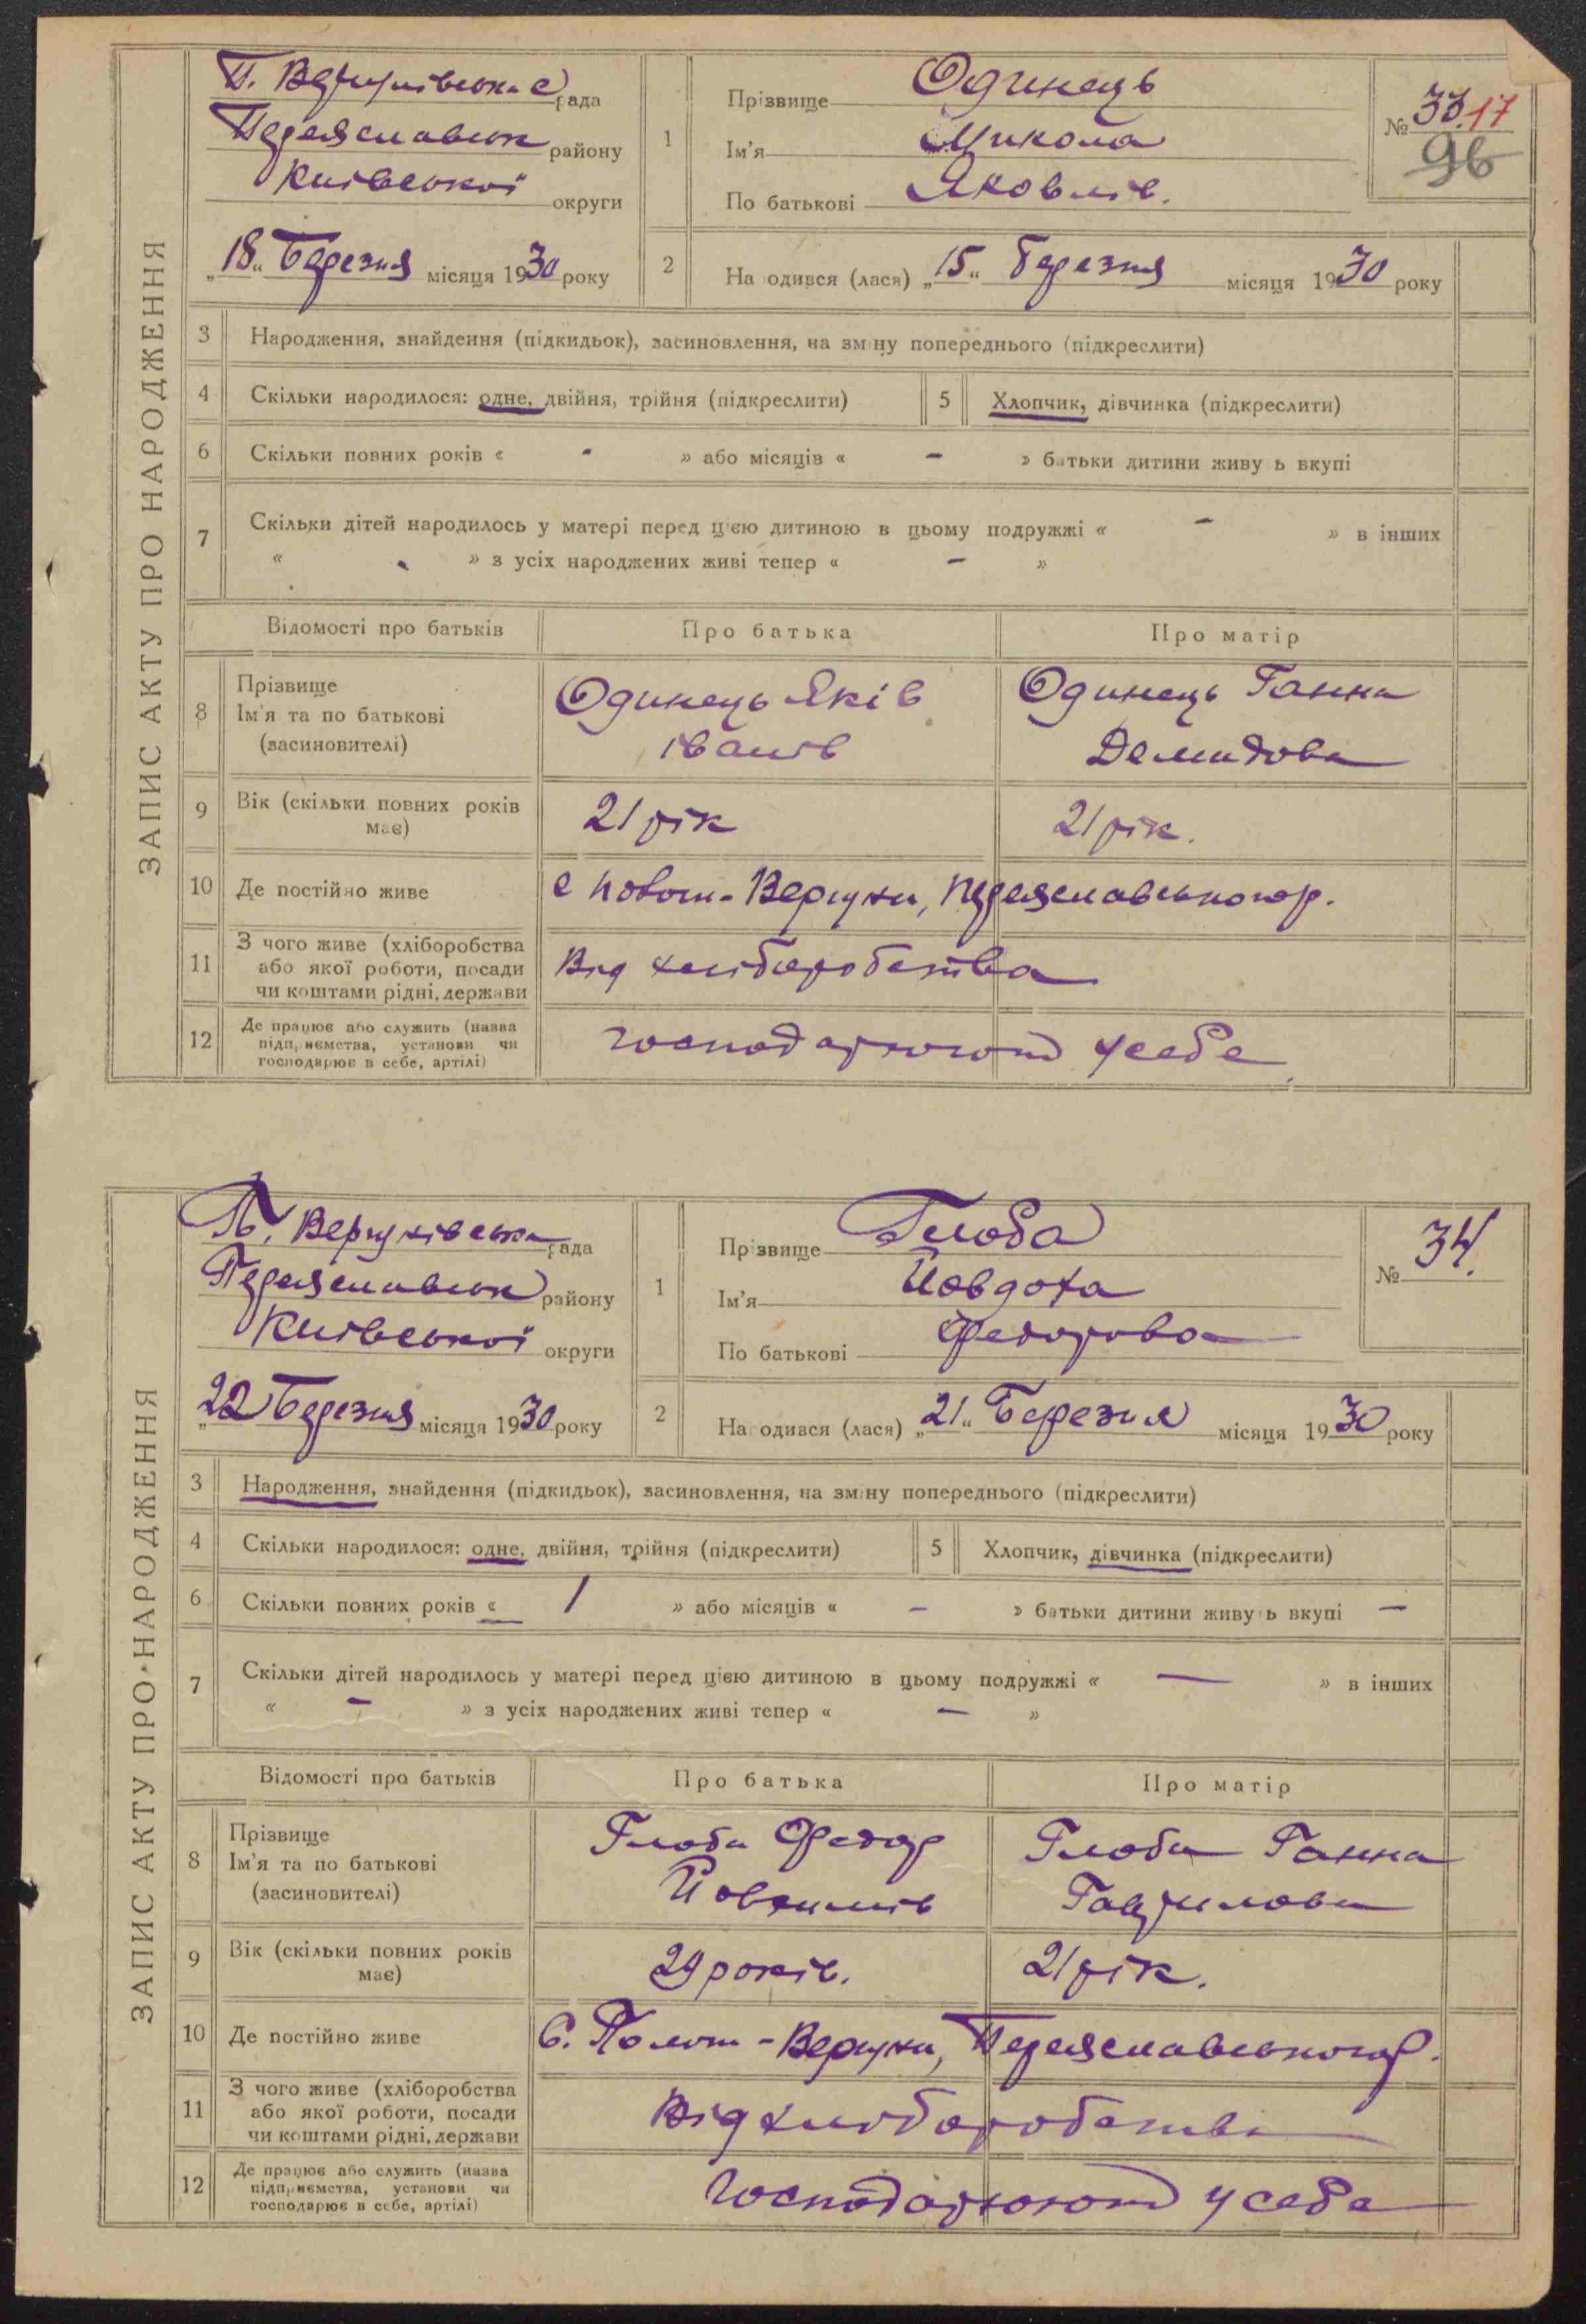 ЗАПИС АКТУ ПРО НАРОДЖЕННЯ
П. Вергунівська рада
Переяславськ району
Київської округи
„18“ Березня місяця 1930 року
1 Прізвище Одинець
Ім'я Микола
По батькові Яковлів.
№ 33. 17
96
2 Народився (лася) „15“ березня місяця 1930 року
3 Народження, знайдення (підкидьок), засиновлення, на зміну попереднього (підкреслити)
4 Скільки народилося: одне, двійня, трійня (підкреслити) 5 Хлопчик, дівчинка (підкреслити)
6 Скільки повних років « - » або місяців « - » батьки дитини живуть вкупі
7 Скільки дітей народилось у матері перед цією дитиною в цьому подружжі « - » в інших
« - » з усіх народжених живі тепер « - »
Відомості про батьків Про батька Про матір
8 Прізвище
Ім'я та по батькові
(засиновителі)
Одинець Яків
Іванів
Одинець Ганна
Демидова
9 Вік (скільки повних років
має)
21 рік 21 рік.
10 Де постійно живе с Вергуни, Переяславського р.
11 З чого живе (хліборобства
або якої роботи, посади
чи коштами рідні, держави
Від хліборобства
12 Де працює або служить (назва
підприємства, установи чи
господарює в себе, артілі)
господарюють у себе
ЗАПИС АКТУ ПРО НАРОДЖЕННЯ
П. Вергунівська рада
Переяславськ району
Київської округи
„22 Березня місяця 1930 року
1 Прізвище Глоба
Ім'я Йовдоха
По батькові Федорова
№ 34.
2 Народився (лася) „21“ Березня місяця 1930 року
3 Народження, знайдення (підкидьок), засиновлення, на зміну попереднього (підкреслити)
4 Скільки народилося: одне, двійня, трійня (підкреслити) 5 Хлопчик, дівчинка (підкреслити)
6 Скільки повних років « 1 » або місяців « - » батьки дитини живуть вкупі -
7 Скільки дітей народилось у матері перед цією дитиною в цьому подружжі « — » в інших
« - » з усіх народжених живі тепер « - »
Відомості про батьків Про батька Про матір
8 Прізвище
Ім'я та по батькові
(засиновителі)
Глоба Федор
Глоба Ганна
Гаврилова
9 Вік (скільки повних років
має)
29 років. 21 рік.
10 Де постійно живе С. Полом-Вергуни, Переяславського р.
11 З чого живе (хліборобства
або якої роботи, посади
чи коштами рідні, держави
Від хліборобства
12 Де працює або служить (назва
підприємства, установи чи
господарює в себе, артілі)
господарюють у себе